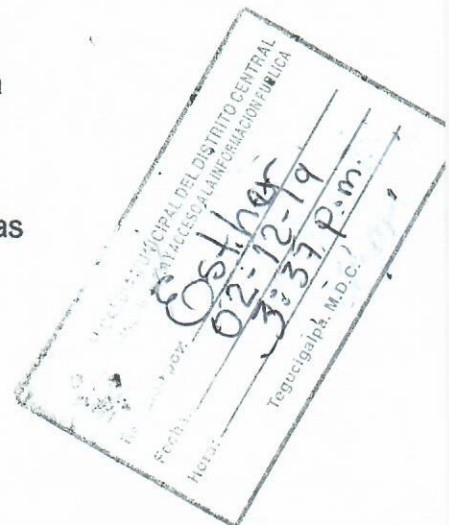 as
MUNICIPAL DEL DISTRITO CENTRAL
Y ACCESO A LA INFORMACION PUBLICA
por: Esther
Fecha: 02-12-19
Hora: 3:37 p.m.
Tegucigalpa, M.D.C.